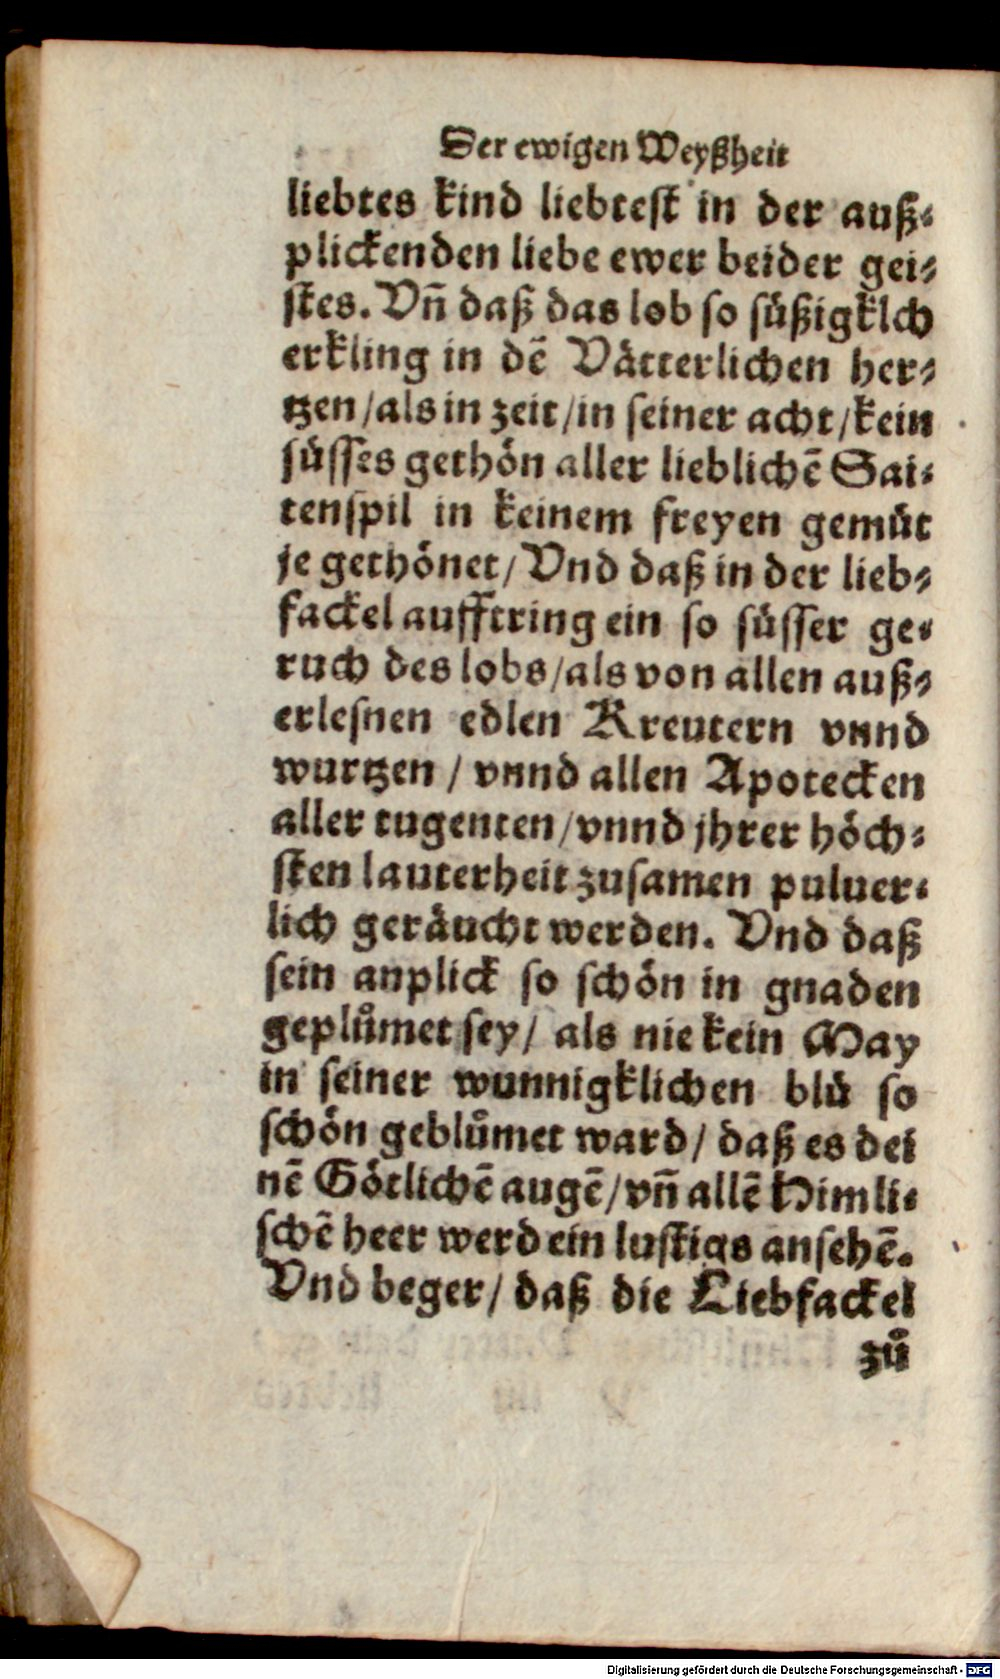 Der ewigen Weyßheit
liebtes kind liebtest in der auß⸗
plickenden liebe ewer beider gei⸗
stes. Vñ daß das lob so süßigklch
erkling in dē Vätterlichen her⸗
tzen / als in zeit / in seiner acht / kein
süsses gethön aller lieblichē Sai⸗
tenspil in keinem freyen gemüt
je gethönet / Vnd daß in der lieb⸗
fackel aufftring ein so süsser ge⸗
ruch des lobs / als von allen auß⸗
erlesnen edlen Kreutern vnnd
wurtzen / vnnd allen Apotecken
aller tugenten / vnnd jhrer höch⸗
sten lauterheit zusamen puluer⸗
lich geräucht werden. Vnd daß
sein anplick so schön in gnaden
geplůmet sey / als nie kein May
in seiner wunnigklichen blü so
schön geblůmet ward / daß es dei
nē Götlichē augē / vñ allē Himli⸗
schē heer werd ein lustigs ansehē.
Vnd beger / daß die Liebfackel
zů
Digitalisierung gefördert durch die Deutsche Forschungsgemeinschaft - DFG